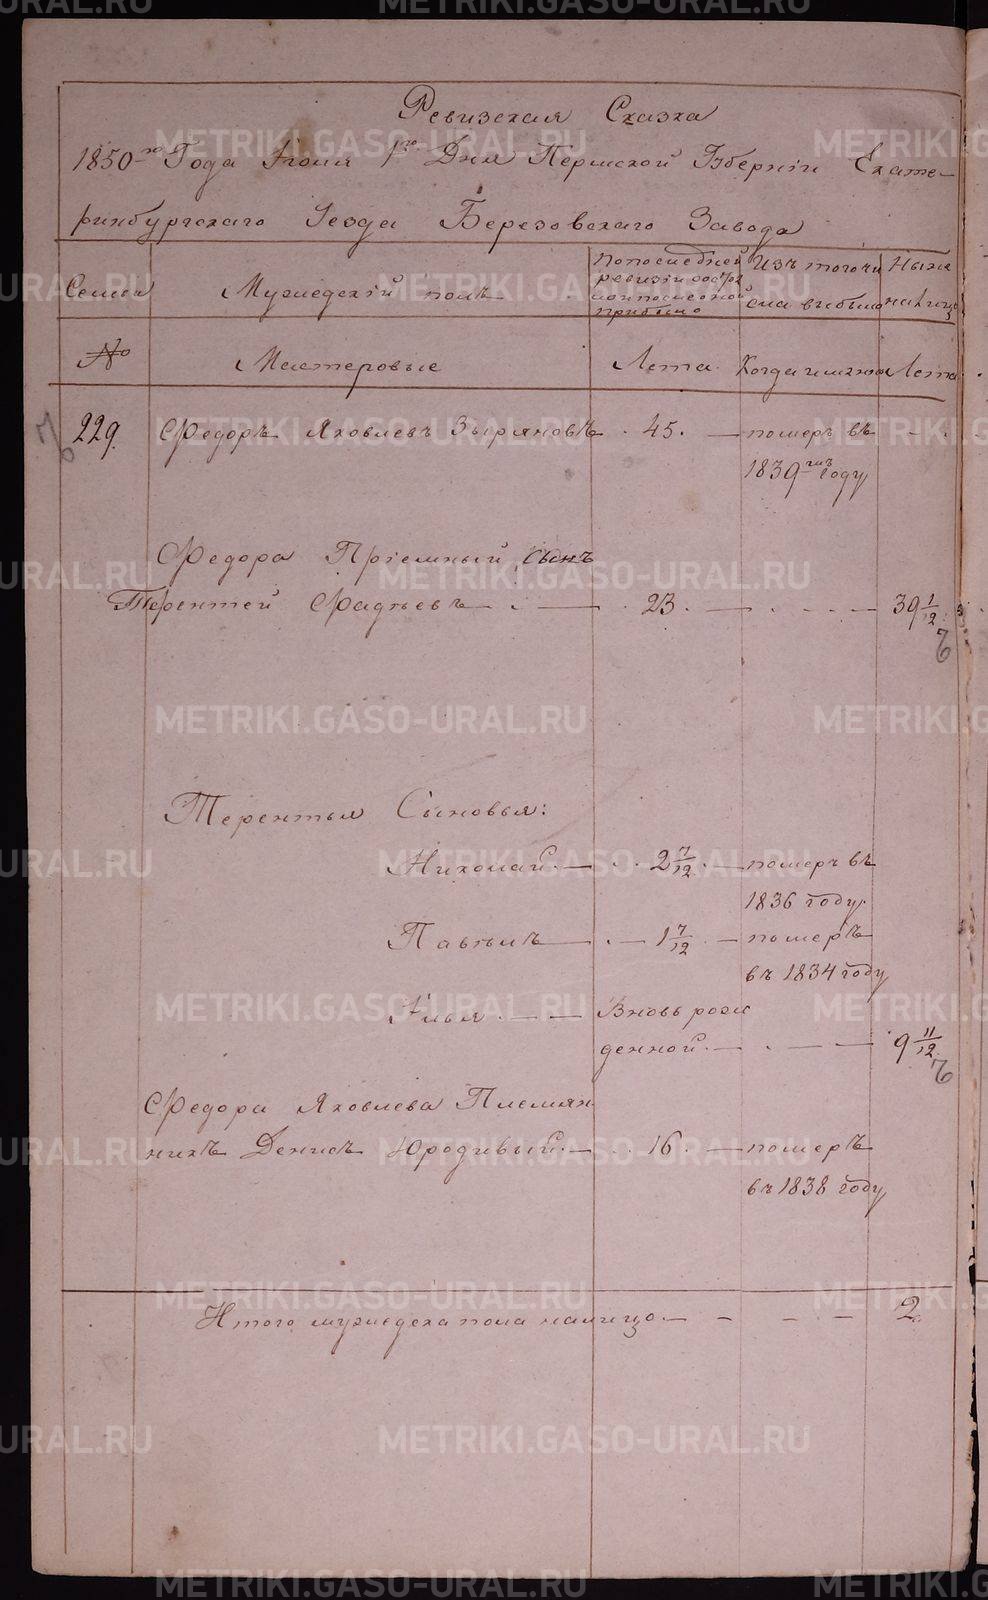 Ревизская Сказка
1850-го Года Июля 1го Дня Пермской Губернiи Екате-
ринбургскаго Уезда Березовскаго Завода
Семьи Мужедескiй полъ По последней ревизiи состояло и после оной прибыло Изъ того числа выбыло Ныне на лицо
№ Мастеровые Лета Когда именно Лета
229. Федоръ Яковлевъ Зыряновъ 45. померъ въ
1839мъ году
Федора Прiемный Сынъ
Терентей Фадеевъ 23. 39 1/12
Терентья Сыновья:
Николай 2 7/12 померъ въ
1836 году.
Павелъ 1 7/12 померъ
въ 1834 году
Илья Вновь рож
денной 9 11/12
Федора Яковлева Племян
никъ Денисъ Юродивый 16. померъ
въ 1838 году
Итого мужедеска пола налицо 2.
METRIKI.GASO-URAL.RU